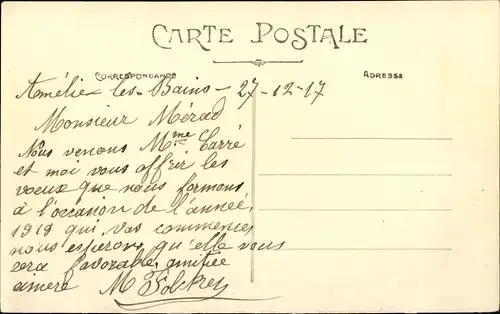 CARTE POSTALE
CORRESPONDANCE
ADRESSE
Amélie les Bains - 27-12-17
Monsieur Mérad
Nous venons Mme Carré
et moi vous offrir les
voeux que nous formons
à l'occasion de l'année
1918 qui, vas commencer
nous esperons qu'elle vous
sera favorable, amitiée
sincère M